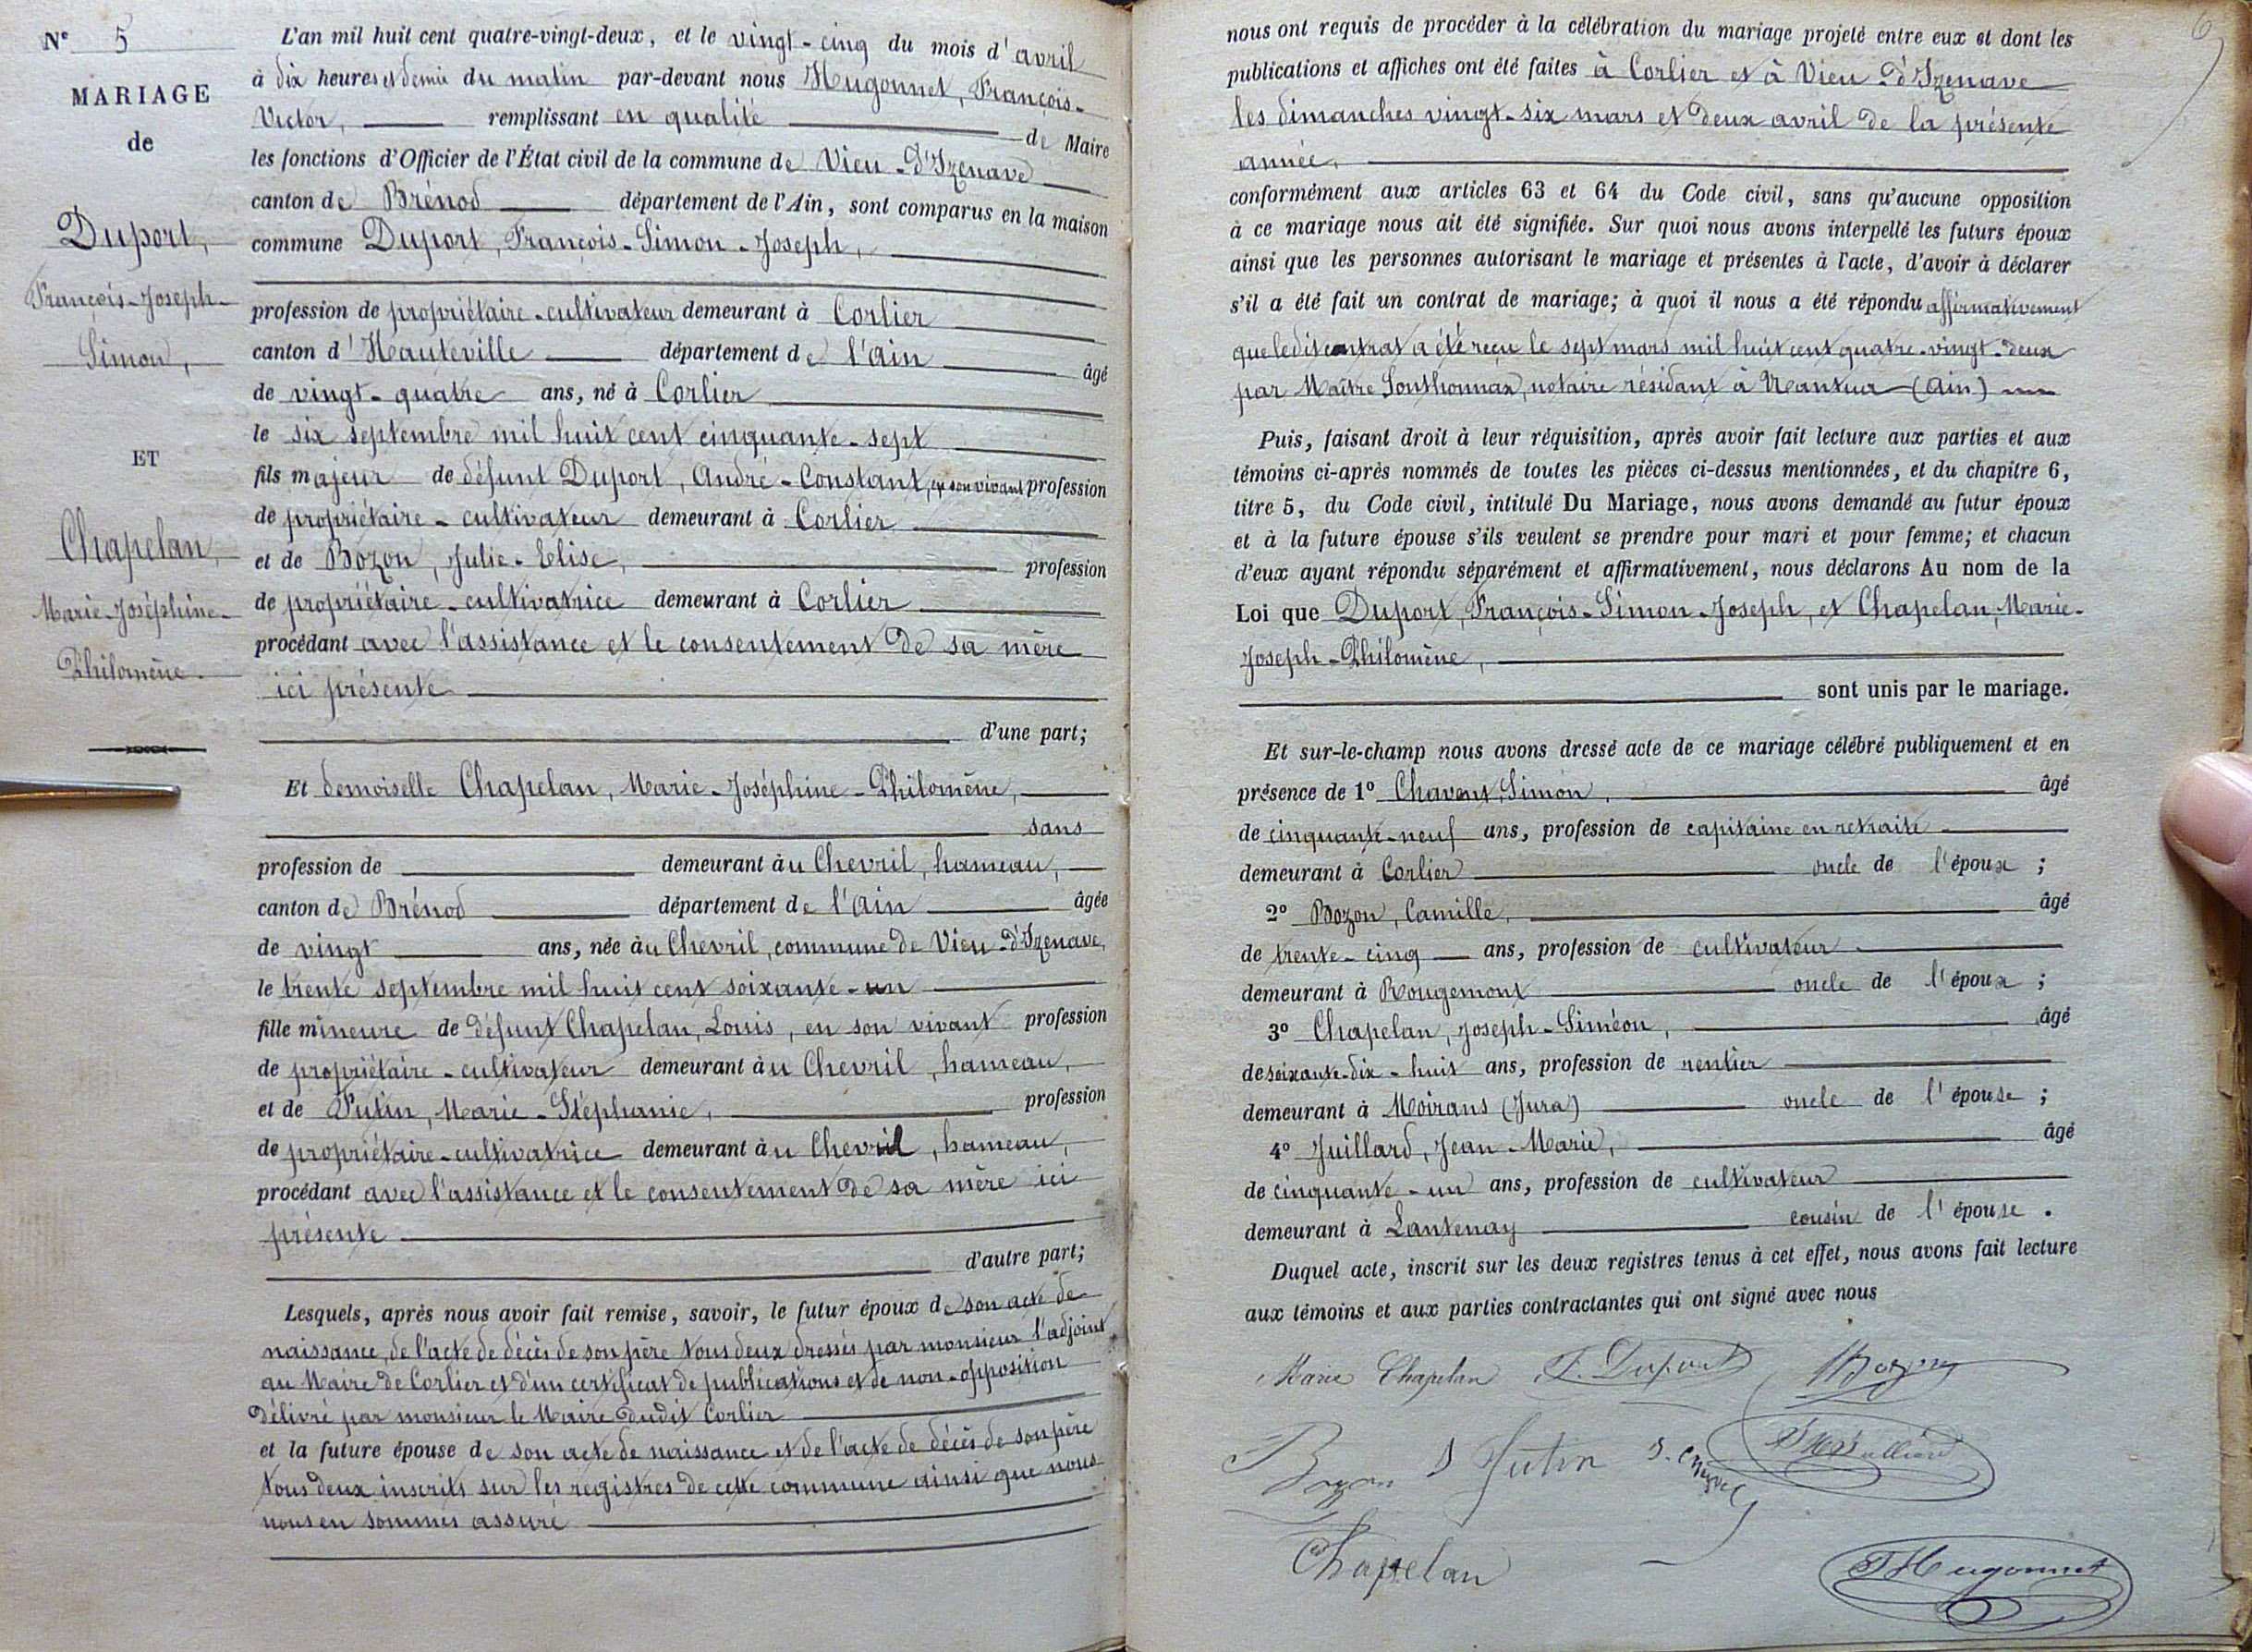 N° 5
MARIAGE
de
Duport,
François-Joseph-
Simon,
ET
Chapelan,
Marie-Joséphine-
Philomène.
L'an mil huit cent quatre-vingt-deux, et le vingt-cinq du mois d'avril
à dix heures et demie du matin par-devant nous Hugonnet, François-
Victor, remplissant en qualité de Maire
les fonctions d'Officier de l'État civil de la commune de Vieu-d'Izenave
canton de Brénod département de l'Ain, sont comparus en la maison
commune Duport, François-Simon-Joseph,
profession de propriétaire-cultivateur demeurant à Corlier
canton d'Hauteville département de l'Ain âgé
de vingt-quatre ans, né à Corlier
le six septembre mil huit cent cinquante-sept
fils majeur de défunt Duport, André-Constant, en son vivant profession
de propriétaire-cultivateur demeurant à Corlier
et de Bozon, Julie-Elise, profession
de propriétaire-cultivatrice demeurant à Corlier
procédant avec l'assistance et le consentement de sa mère
ici présente
d'une part;
Et demoiselle Chapelan, Marie-Joséphine-Philomène,
sans
profession de demeurant àu Chevril, hameau,
canton de Brénod département de l'Ain âgée
de vingt ans, née àu Chevril, commune de Vieu-d'Izenave,
le trente septembre mil huit cent soixante-un
fille mineure de défunt Chapelan, Louis, en son vivant profession
de propriétaire-cultivateur demeurant àu Chevril, hameau,
et de Jutin, Marie-Stéphanie, profession
de propriétaire-cultivatrice demeurant àu Chevril, hameau,
procédant avec l'assistance et le consentement de sa mère ici
présente
d'autre part;
Lesquels, après nous avoir fait remise, savoir, le futur époux de son acte de
naissance, de l'acte de décès de son père tous deux dressés par monsieur l'adjoint
au Maire de Corlier et d'un certificat de publications et de non-opposition
délivré par monsieur le Maire dudit Corlier
et la future épouse de son acte de naissance et de l'acte de décès de son père
tous deux inscrits sur les registres de cette commune ainsi que nous
nous en sommes assuré
6
nous ont requis de procéder à la célébration du mariage projeté entre eux et dont les
publications et affiches ont été faites à Corlier et à Vieu-d'Izenave
les dimanches vingt-six mars et deux avril de la présente
année,
conformément aux articles 63 et 64 du Code civil, sans qu'aucune opposition
à ce mariage nous ait été signifiée. Sur quoi nous avons interpellé les futurs époux
ainsi que les personnes autorisant le mariage et présentes à l'acte, d'avoir à déclarer
s'il a été fait un contrat de mariage; à quoi il nous a été répondu affirmativement
que ledit contrat a été reçu le sept mars mil huit cent quatre-vingt-deux
par Maître Sonthonnax, notaire résidant à Nantua (Ain)
Puis, faisant droit à leur réquisition, après avoir fait lecture aux parties et aux
témoins ci-après nommés de toutes les pièces ci-dessus mentionnées, et du chapitre 6,
titre 5, du Code civil, intitulé Du Mariage, nous avons demandé au futur époux
et à la future épouse s'ils veulent se prendre pour mari et pour femme; et chacun
d'eux ayant répondu séparément et affirmativement, nous déclarons Au nom de la
Loi que Duport, François-Simon-Joseph, et Chapelan, Marie-
Joseph-Philomène,
sont unis par le mariage.
Et sur-le-champ nous avons dressé acte de ce mariage célébré publiquement et en
présence de 1° Chavent, Simon, âgé
de cinquante-neuf ans, profession de capitaine en retraite
demeurant à Corlier oncle de l'époux ;
2° Bozon, Camille, âgé
de trente-cinq ans, profession de cultivateur
demeurant à Rougemont oncle de l'époux ;
3° Chapelan, Joseph-Siméon, âgé
de soixante-dix-huit ans, profession de rentier
demeurant à Moirans (Jura) oncle de l'épouse ;
4° Juillard, Jean-Marie, âgé
de cinquante-un ans, profession de cultivateur
demeurant à Lantenay cousin de l'épouse.
Duquel acte, inscrit sur les deux registres tenus à cet effet, nous avons fait lecture
aux témoins et aux parties contractantes qui ont signé avec nous
Marie Chapelan F. Duport Bozon
Bozon S Jutin
Chapelan
Hugonnet